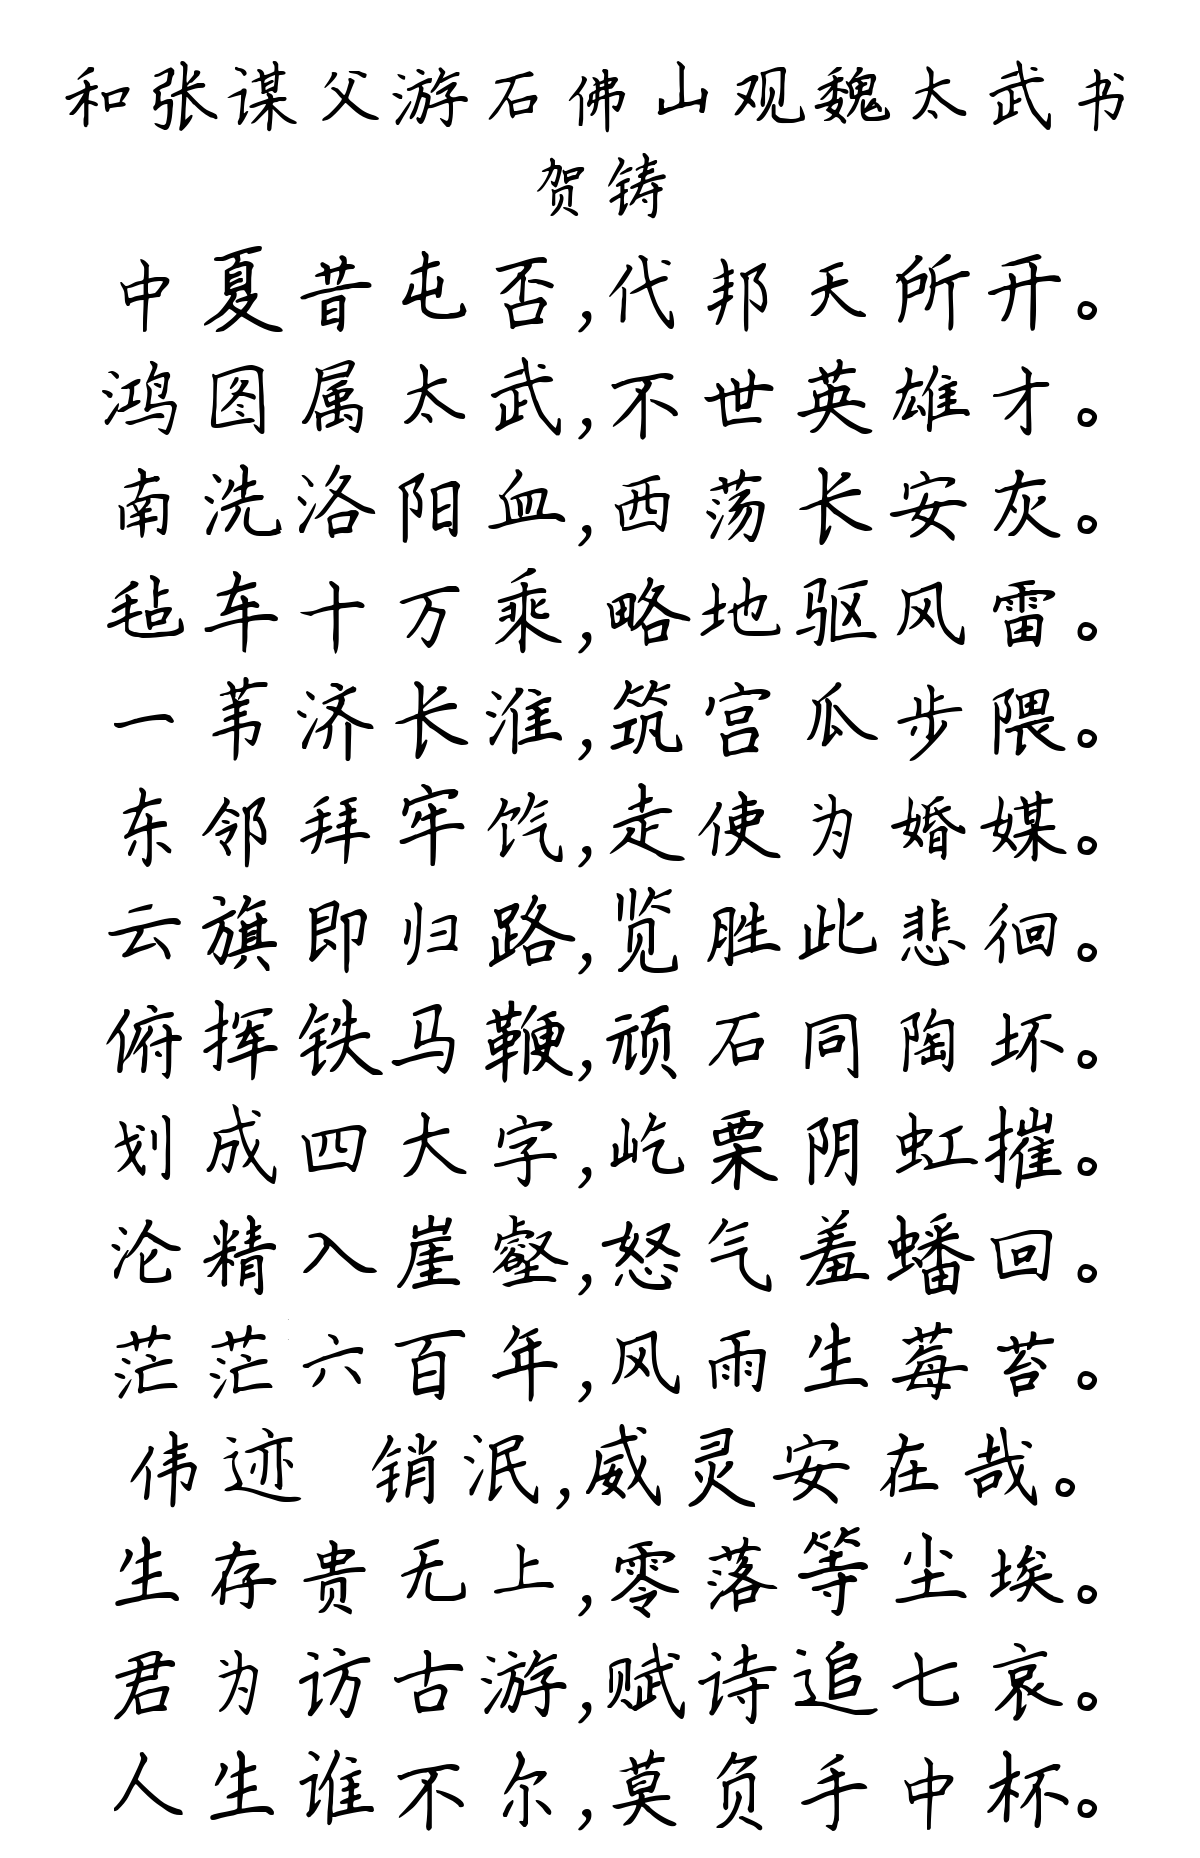 和张谋父游石佛山观魏太武书
贺铸
中夏昔屯否,代邦天所开。
鸿图属太武,不世英雄才。
南洗洛阳血,西荡长安灰。
毡车十万乘,略地驱风雷。
一苇济长淮,筑宫瓜步隈。
东邻拜牢饩,走使为婚媒。
云旗即归路,览胜此悲徊。
俯挥铁马鞭,顽石同陶坏。
划成四大字,屹栗阴虹摧。
沦精入崖壑,怒气羞蟠回。
茫茫六百年,风雨生莓苔。
伟迹 销泯,威灵安在哉。
生存贵无上,零落等尘埃。
君为访古游,赋诗追七哀。
人生谁不尔,莫负手中杯。